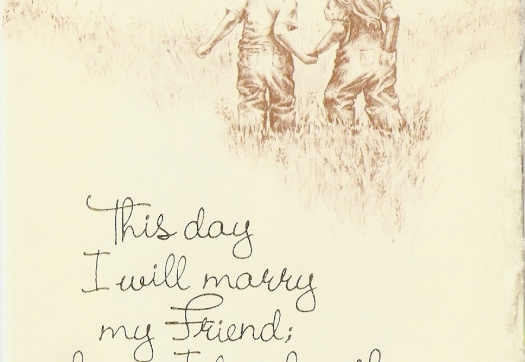 This day
I will marry
my Friend;